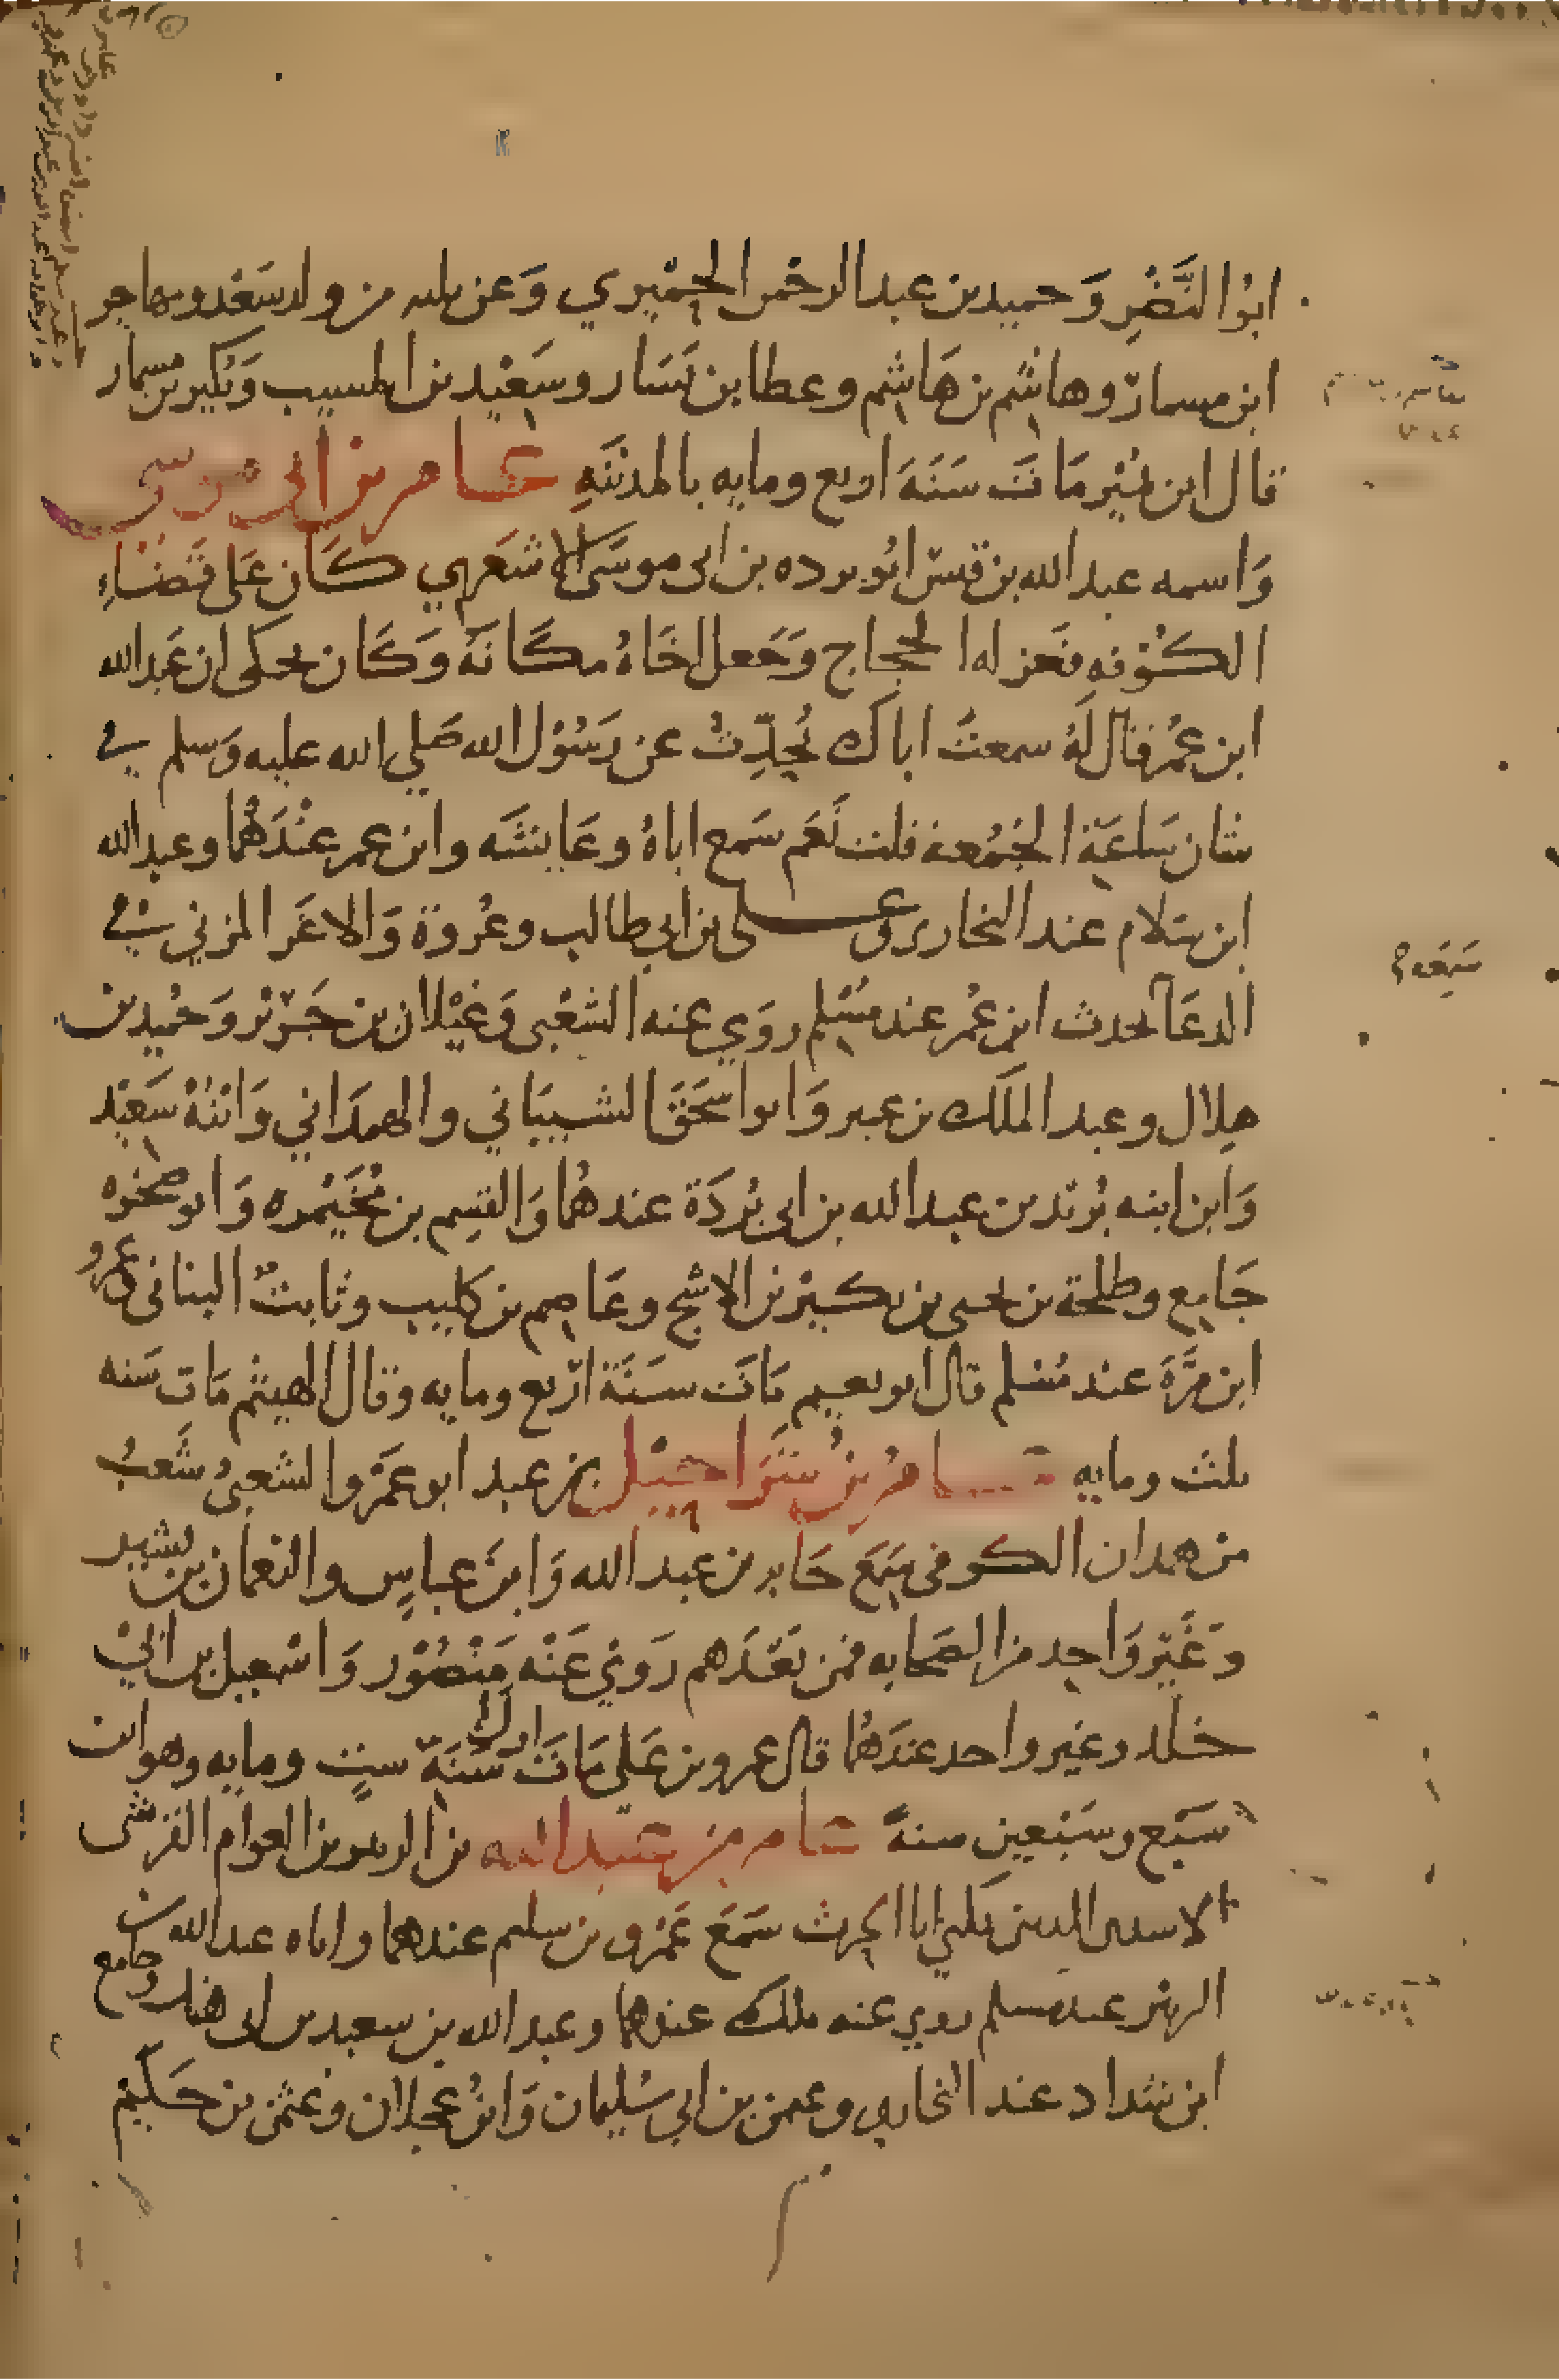 ابوُا النَّضْرِ وَحميد بن عبد الرحمن الحِمْيري وَعن ثلثه من ولد سَعْد ومهاجر
ابن مسمار وهاشم بن هَاشم وعطا بن يَسَار وسَعْيد بن المسيب وَبُكير بن مسمار
قال ابن نُمْير مَاتَ سَنَةَ اربع ومايه بالمدينَهِ عامر بن ابي موسى
وَاسمه عبد الله بن قيسْ ابُو برده بن ابى موسَى الاشعَري كَان عَلى قضَاءِ
الكُوْفهِ فعَزله الحجاج وَجَعل اخَاهُ مكَانَهُ وَكَان يحكى ان عَبد الله
ابن عُمَر قال لَهُ سمعتَ اباكَ يُحِدِّث عن رَسُوْل الله صَلي الله عليه وَسلم في
شان سَاعَةِ الجُمُعة قلت نَعَم سَمع اباهُ وعَايشَه وابن عمر عنْدَهُمَا وعبد الله
ابن سَلام عند البخاري وعلى بن ابي طالب وعُروة وَالاغَر المزني في
الدعَآ لحدث ابن عُمر عند مُسْلم روَي عنه الشعْبى وَغَيْلان بن جَريْر وَحُميد بن
هِلال وعبد الملَك بن عمير وَابو اسحَقَ الشيبَاني والهمدَاني وَابنُهُ سَعيْد
وَابن ابنه بُرَيْد بن عبد الله بن ابى بُردَة عندهُمَا وَالقسِم بن مُخَيْمره وَابو صخره
جَامِع وطلحة بن يحيى بن بكَيْر بن الاشج وعَاصِم بن كليب وثابتٌ البنانى وعمرو
ابن مرَّةَ عند مُسْلم قال ابو نعيم مَاتَ سَنَة ارْبع ومايه وقال الهيثم مَات سَنه
ثلث ومايه عامرُ بنُ شَرَاحِيْل بن عبد ابو عَمْرو الشعبىُ شَعبُ
من همدان الكوفى سَمَعَ جَابر بن عبد الله وَابنَ عباسٍ والنعمَان بن بشير
وَغَيْر وَاحِد من الصَحَابه فمن بَعْدَهم رَوَيْ عَنْه مَنْصُوْر وَاسْمعيل بن ابيْ
خلد وغير واحد عندَهُمَا قال عمرو بن عَلي مَاتَ اول سَنَةِ ستٍ ومايه وهو ابن
سَبْع وسَبْعين سنةً عامر بن عبد الله بن الزبير بن العوام القرشى
الاسدى المدينى يكني ابا الحرث سَمَعَ عَمْرو بن سليم عندهما واباه عبد الله بن
الزبير عند مسلم روي عنه ملك عندهما وعبد الله بن سعيد بن ابى هند وجَامع
ابن شداد عند البخاري وعمن بن ابي سُليمان وَابنُ عجلان وَعثمن بن حَكيْم
سَبْعَه م